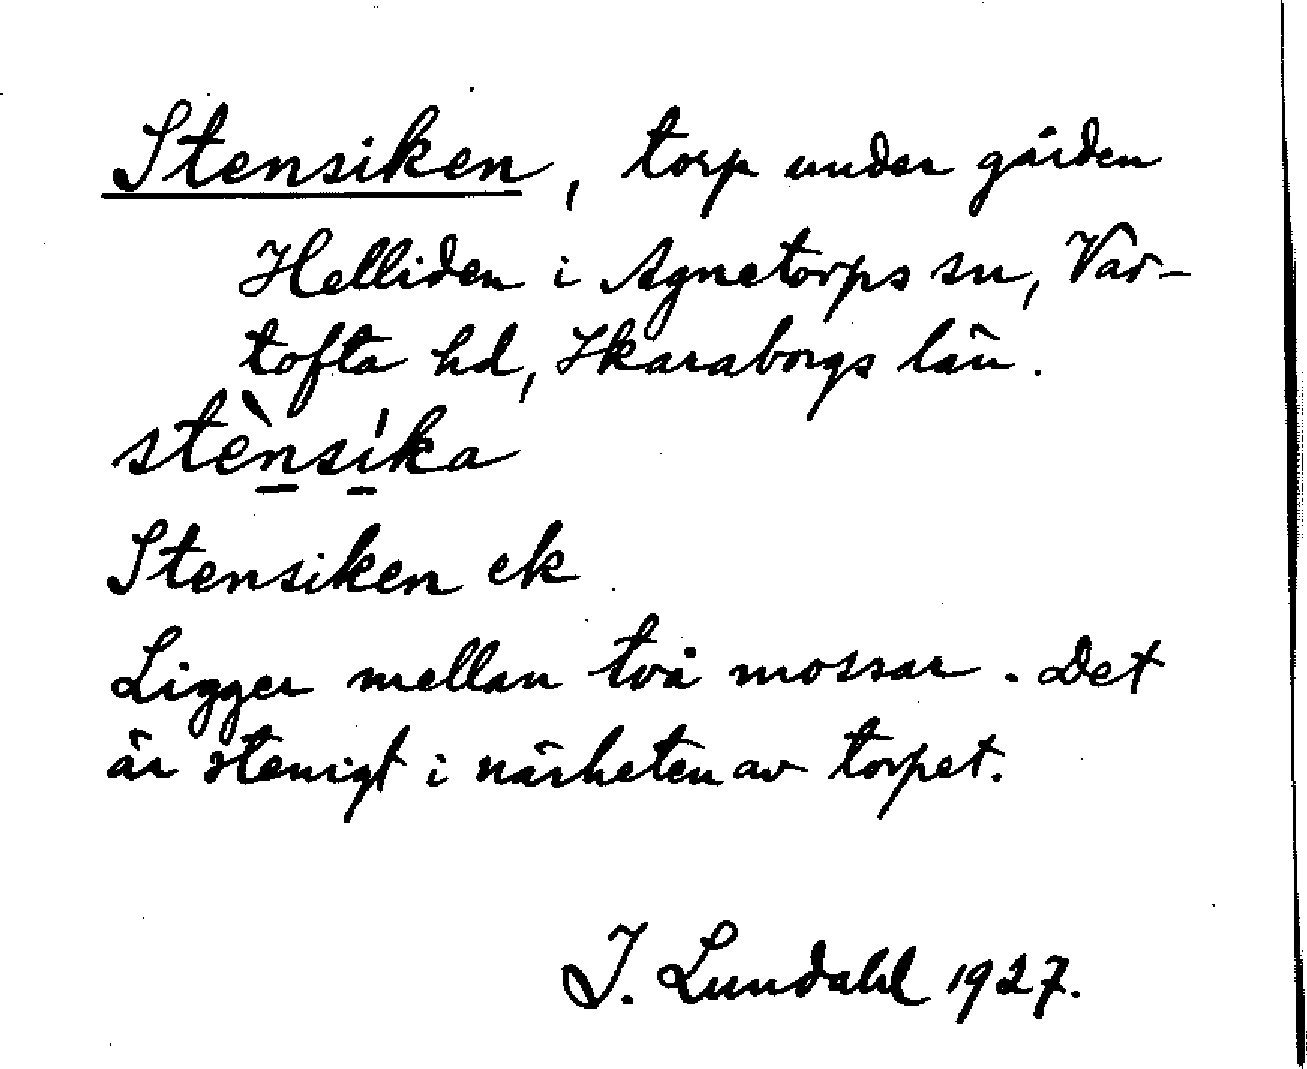 Stensiken, torp under gården
Helliden i Agnetorps sn, Var-
tofta hd, Skaraborgs län.
stènsi̍ka
Stensiken ek
Ligger mellan två mossar. Det
är stenigt i närheten av torpet.
I. Lundahl 1927.